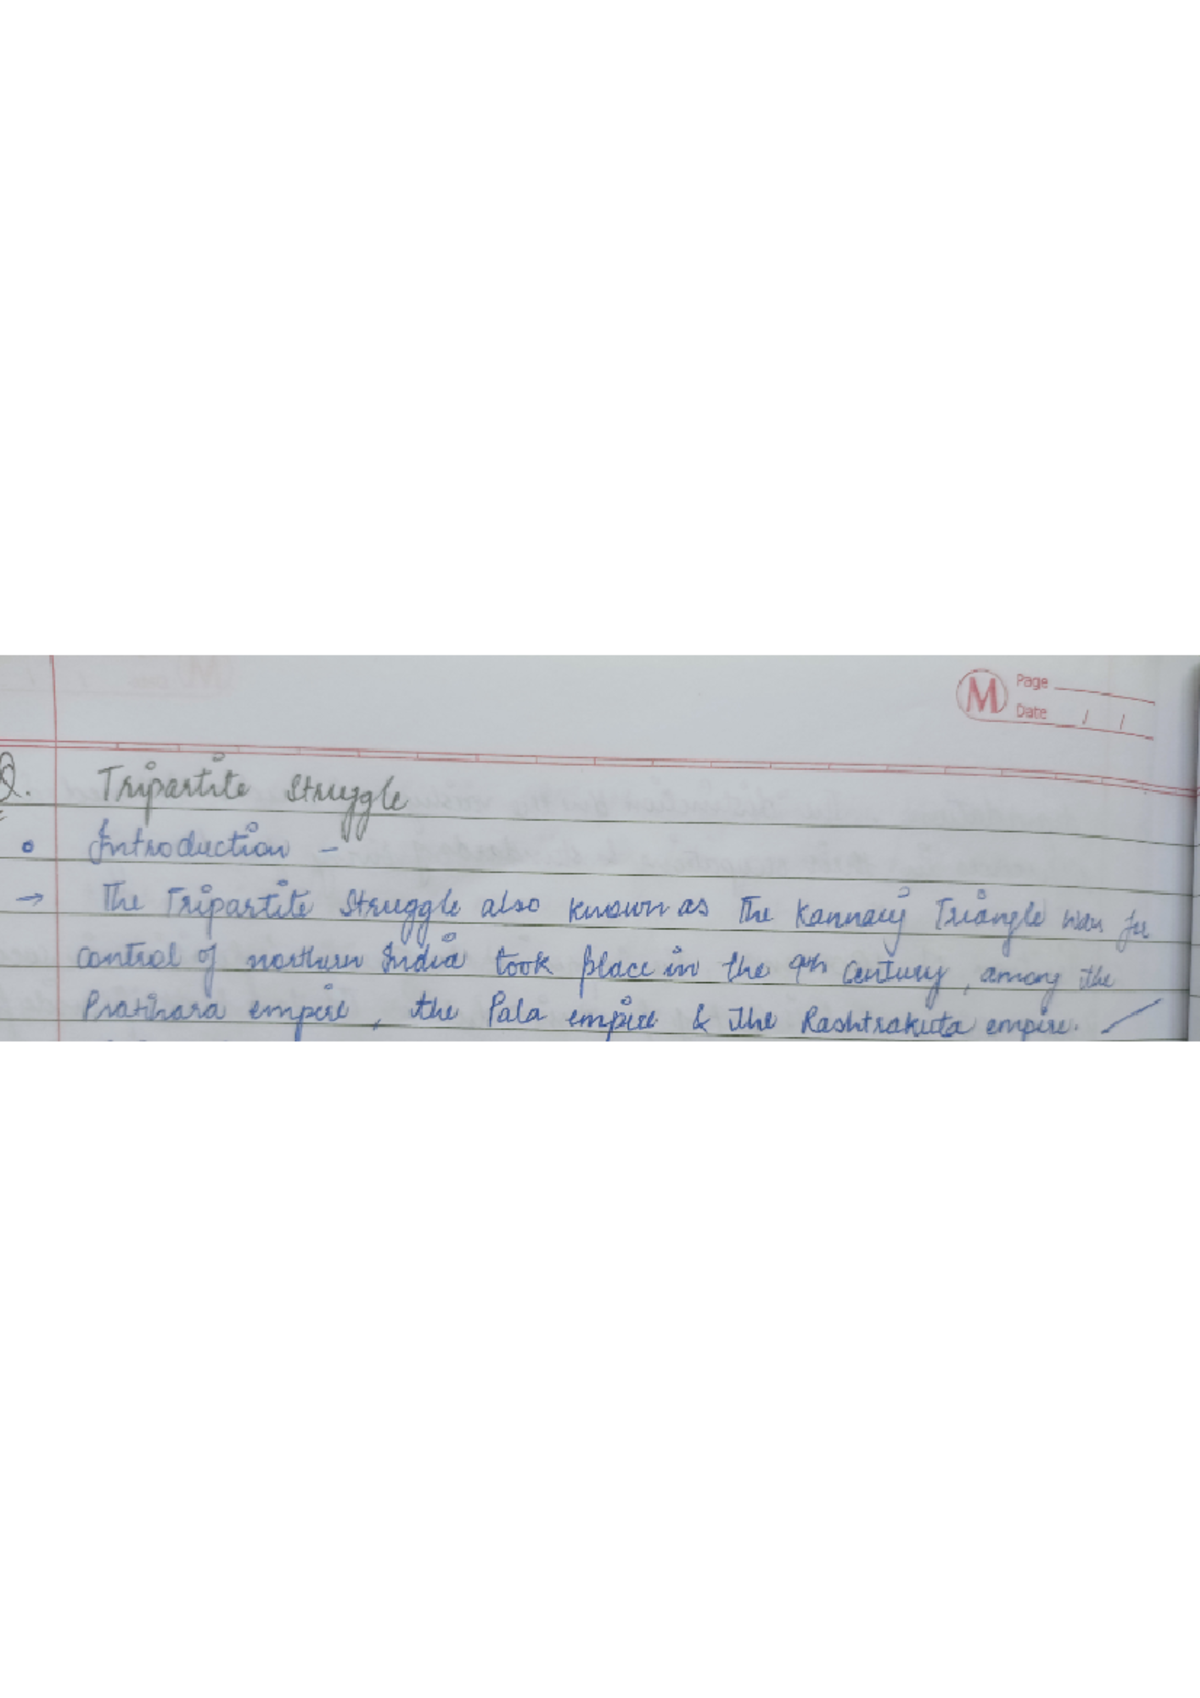 M Page
Date / /
Q. Tripartite Struggle
Introduction -
→ The Tripartite Struggle also known as The Kannauj Triangle was for
control of northern India took place in the 9th Century, among the
Pratihara empire, the Pala empire & the Rashtrakuta empire.